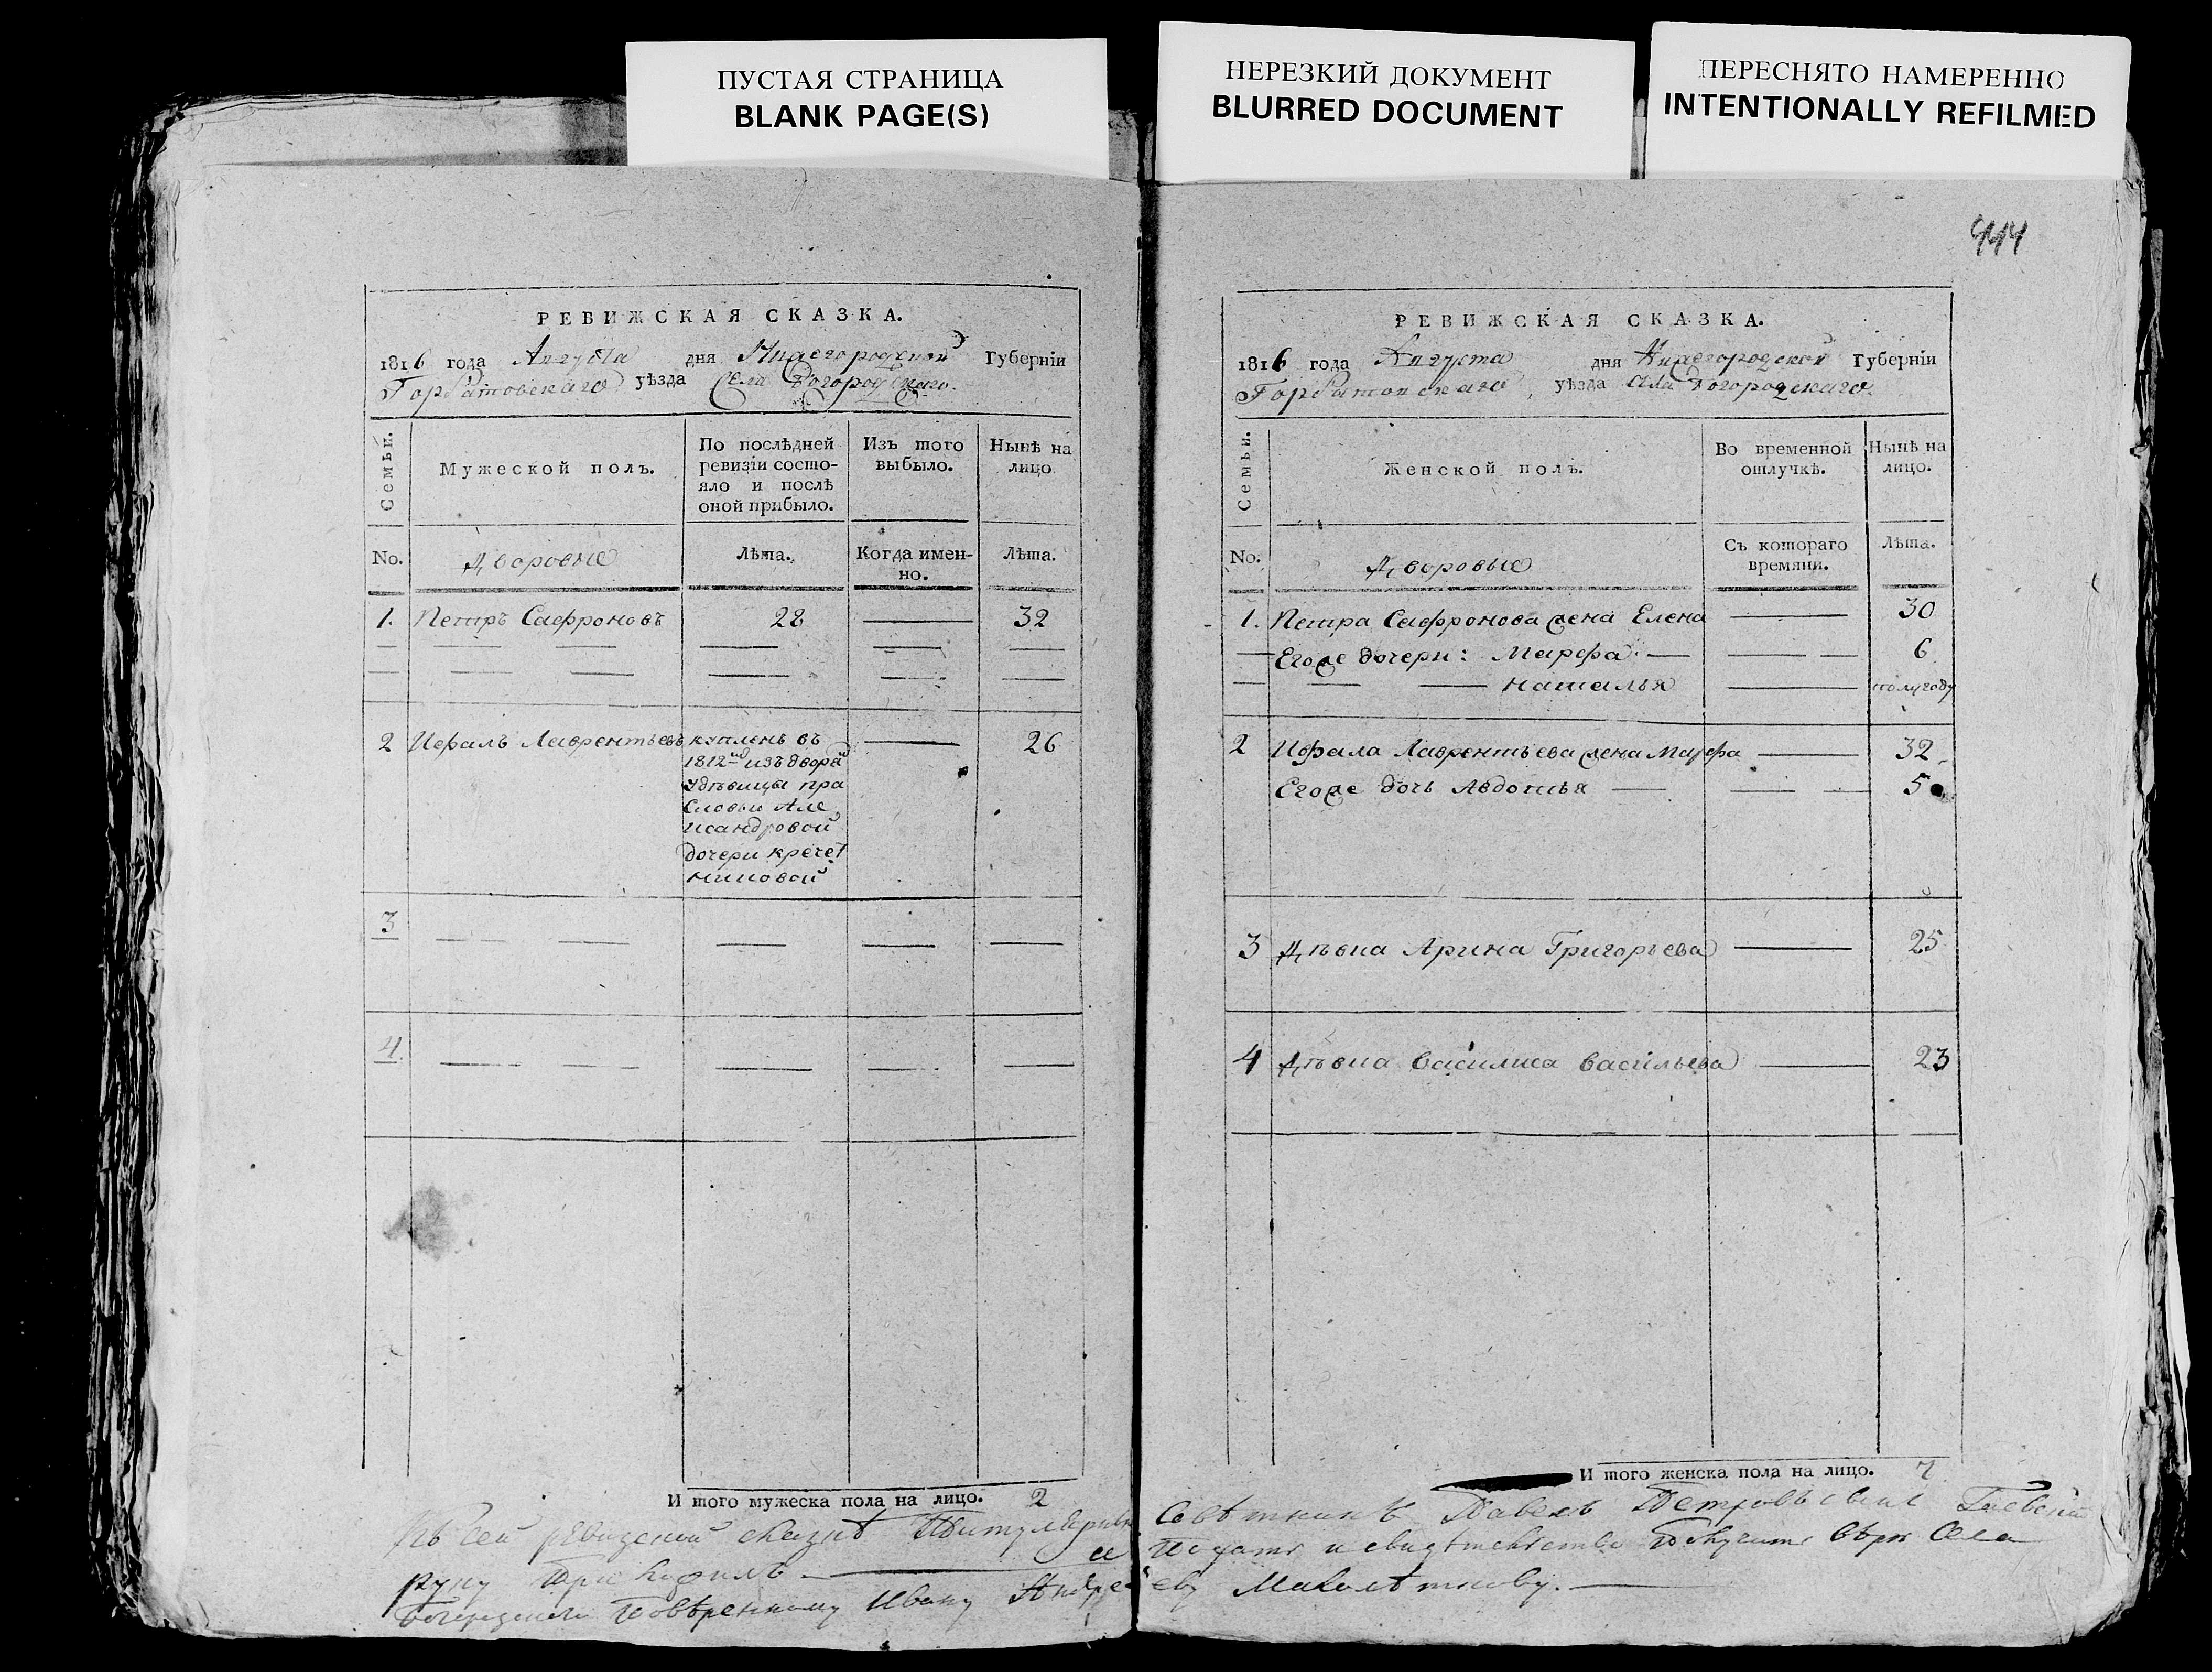 ПУСТАЯ СТРАНИЦА
BLANK PAGE(S)
НЕРЕЗКИЙ ДОКУМЕНТ
BLURRED DOCUMENT
ПЕРЕСНЯТО НАМЕРЕННО
INTENTIONALLY REFILMED
РЕВИЖСКАЯ СКАЗКА.
1816 года Августа дня Нижегородской Губерніи
Горбатовскаго уѣзда Села Богородскаго.
Семьи.
Мужеской полъ.
По послѣдней
ревизіи состо-
яло и послѣ
оной прибыло.
Изъ того
выбыло.
Нынѣ на
лицо
No.
Дворовые
Лѣта.
Когда имен-
но.
Лѣта.
1. Петръ Сафроновъ 28 32
2 Иефалъ Лаврентьевъ куплень въ 26
1812 изъ двора
удѣвицы пра
сковьи Але
ксандровой
дочери кречет
никовой
3
4
И того мужеска пола на лицо. 2
Къ сей ревизской сказкѣ Титулярный
руку приложилъ. и
богородскому повѣренному Ивану Андре
444
РЕВИЖСКАЯ СКАЗКА.
1816 года Августа дня Нижегородской Губерніи
Горбатовскаго уѣзда села Богородскаго.
Семьи.
Женской полъ.
Во временной
отлучкѣ.
Нынѣ на
лицо.
No.
Дворовые
Съ котораго
времяни.
Лѣта.
1. Петра Сафронова жена Елена 30
Егоже дочери: Марфа 6
Наталья полугоду
2 Иефала Лаврентьева жена Марфа 32
Егоже дочь Авдотья 5
3 Дѣвка Арина Григорьева 25
4 Дѣвка Василиса Васильева 23
И того женска пола на лицо. 7
Совѣтникъ Павелъ Петровъ сынъ
Подать и свидѣтельство села
еву